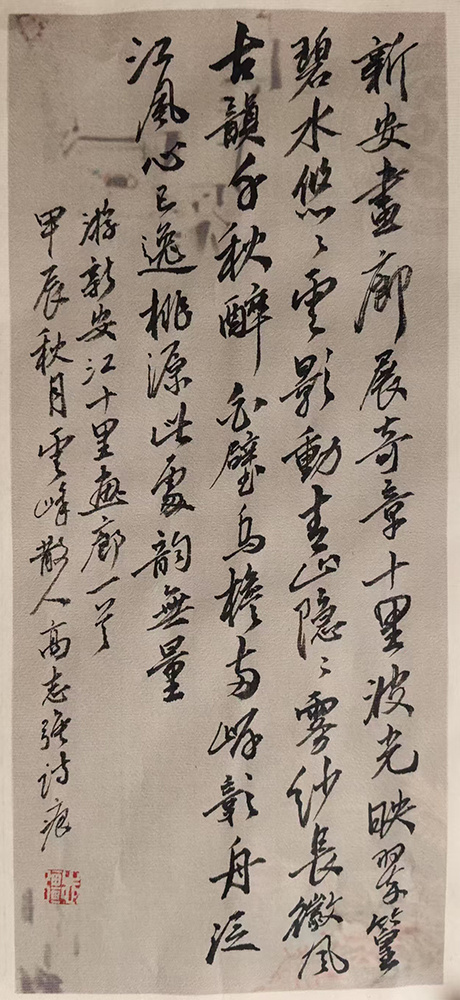 新安畫廊展奇章十里波光映翠篁
碧水悠〻雲影動青山隐〻霧紗長徽風
古韻千秋醉白壁烏檐两岸彰舟泛
江風心已逸桃源此處韵無量
游新安江十里画廊一首
甲辰秋月雲峰散人高志强詩痕